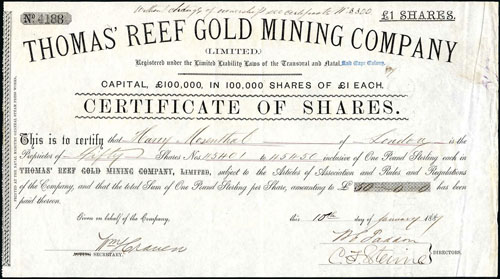 No. 4188
Written change of ownership see certificate No. 3320
£1 SHARES.
THOMAS' REEF GOLD MINING COMPANY
(LIMITED)
Registered under the Limited Liability Laws of the Transvaal and Natal, And Cape Colony.
CAPITAL, £100,000, IN 100,000 SHARES OF £1 EACH.
CERTIFICATE OF SHARES.
This is to certify that Harry Mosenthal of London is the
Proprietor of Fifty Shares Nos 45401 to 45450 inclusive of One Pound Sterling each in
THOMAS' REEF GOLD MINING COMPANY, LIMITED, subject to the Articles of Association and Rules and Regulations
of the Company, and that the total Sum of One Pound Sterling per Share, amounting to £ 50-0-0 has been
paid thereon.
Given on behalf of the Company, this 10th day of January 1887
Wm Craven
SECRETARY.
DIRECTORS.